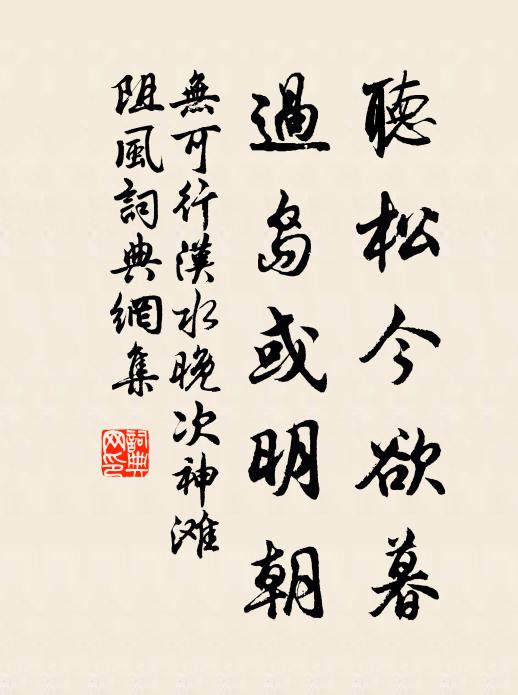 聽松今欲暮
過島或明朝
無可行漢水晚次神滩
阻風詞典網集
詞典網印